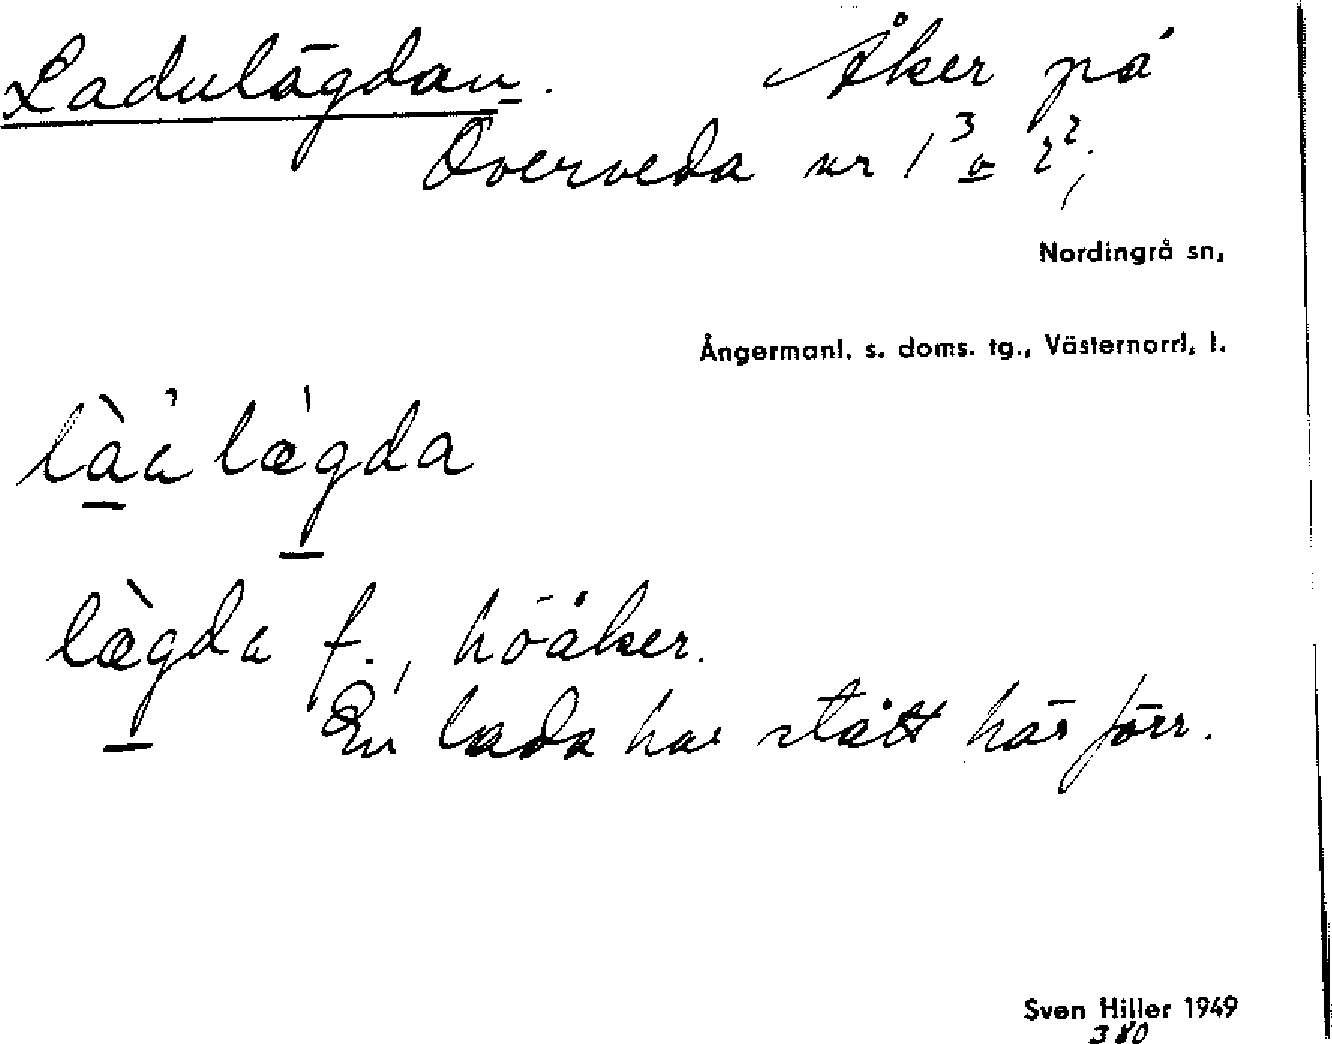 Ladulägdan. Åker på
Överveda nr 1³ o 2²;
Nordingrå sn,
Ångermanl. s. doms. tg., Västernorrl. l.
làå lægda
lægda f., höåker.
En lada har stått här förr.
Sven Hiller 1949
380